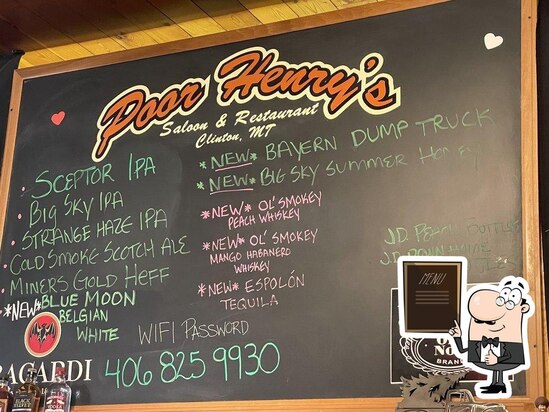 Poor Henry's
Saloon & Restaurant
Clinton, MT
• SCEPTOR IPA
• BIG SKY IPA
• STRANGE HAZE IPA
• COLD SMOKE SCOTCH ALE
• MINERS GOLD HEFF
*NEW* BLUE MOON
BELGIAN
WHITE
* NEW * BAYERN DUMP TRUCK
* NEW * BIG SKY SUMMER HONEY
*NEW* OL' SMOKEY
PEACH WHISKEY
*NEW* OL' SMOKEY
MANGO HABANERO
WHISKEY
*NEW* ESPOLÓN
TEQUILA
J.D.
J.D.
WIFI PASSWORD
406 825 9930
BACARDI
MENU
BRAND